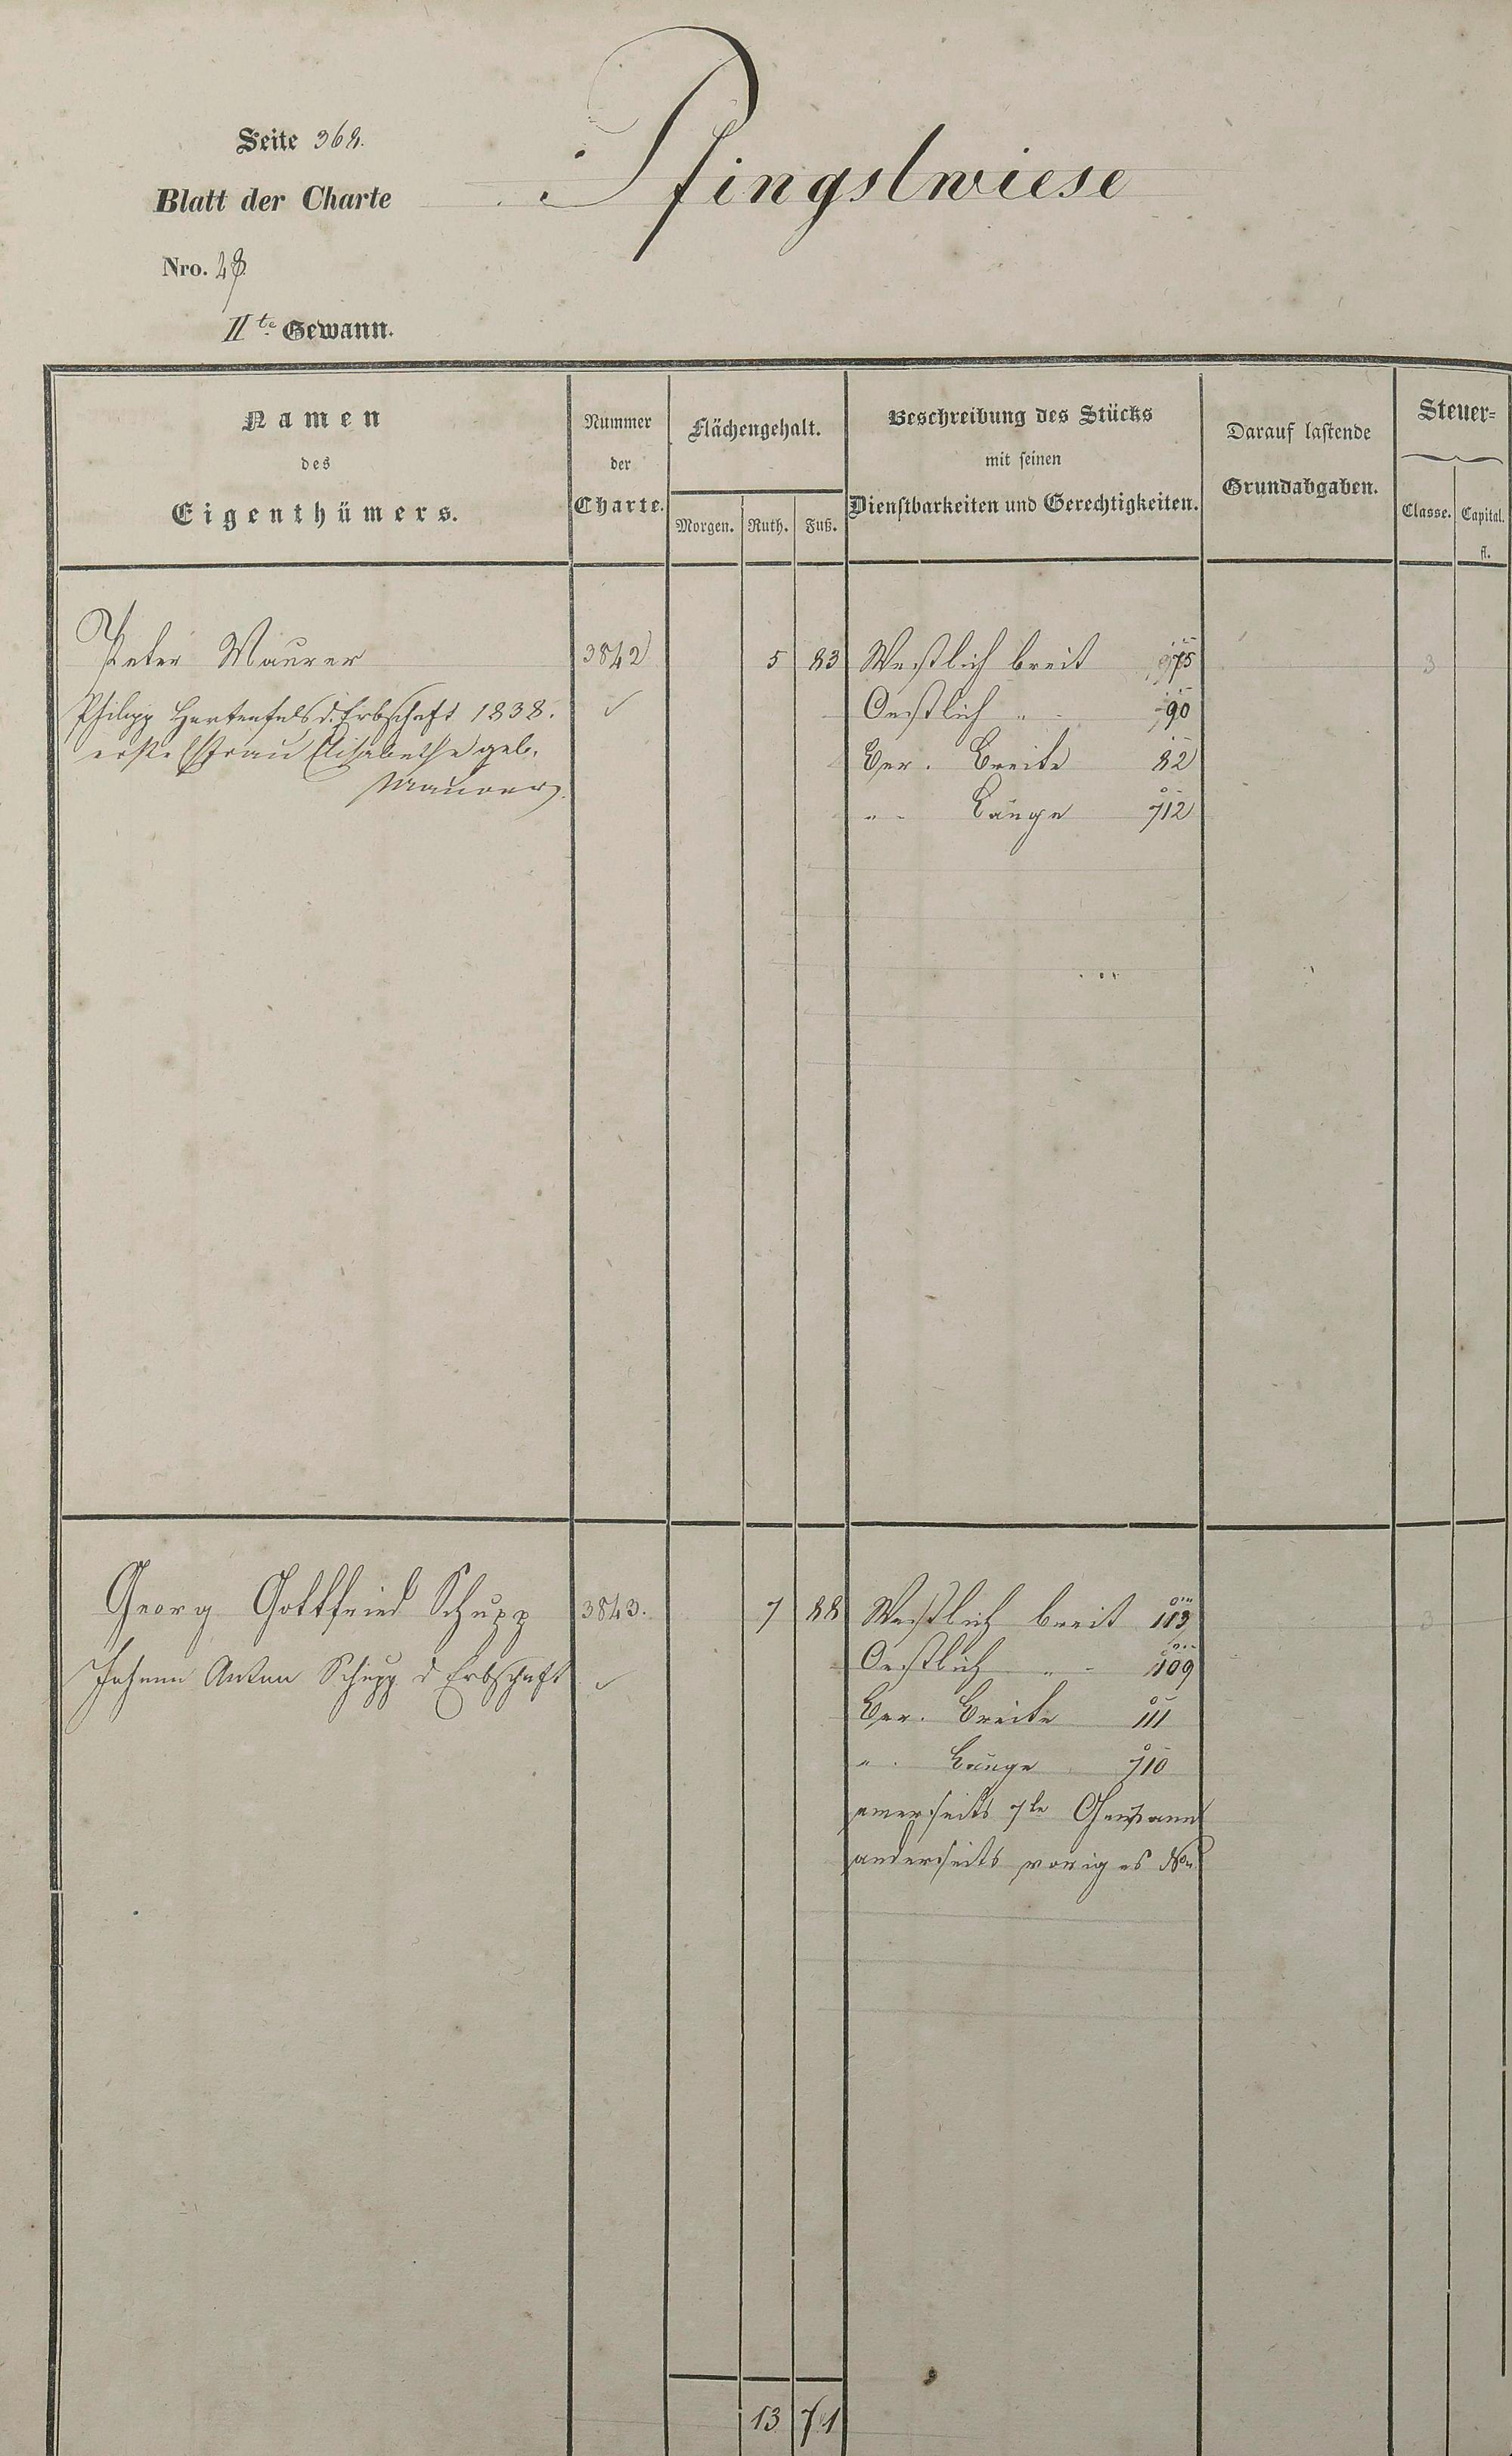 Seite 368.
Pfingstwiese
Blatt der Charte
Nro. 48
IIte Gewann.
Namen
des
Eigenthümers.
Nummer
der
Charte.
Flächengehalt.
Morgen. Ruth. Fuß.
Beschreibung des Stücks
mit seinen
Dienstbarkeiten und Gerechtigkeiten.
Darauf lastende
Grundabgaben.
Steuer=
Classe. Capital.
fl.
Peter Maurer 3842 5 83 Westlich breit 75 3
Philipp Hartenfels d. Erbschaft 1838. ✓ Oestlich " - 90
erste Ehfrau Elisabethe geb. Ber. Breite 82
Maurer. " - Länge 712
Georg Gottfried Schupp 3843. 7 88 Westlich breit 113 3
Johann Anton Schupp d Erbschaft ✓ Oestlich " - 109
Ber. Breite 111
" Länge 710
einerseits 7te Gewann
anderseits voriges Nro
13 71